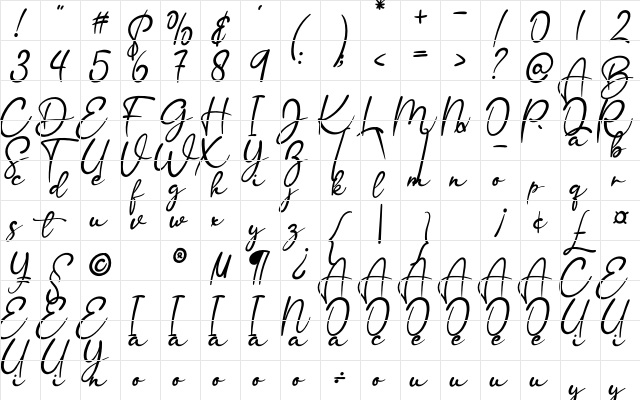 ! " # $ % & ' ( ) * + - / 0 1 2
3 4 5 6 7 8 9 : ; < = > ? @ A B
C D E F G H I J K L M N O P Q R
S T U V W X Y Z [ \ ] _ a b
c d e f g h i j k l m n o p q r
s t u v w x y z { | } ¡ ¢ £ ¤
¥ § © ® µ ¶ ¿ A A A A A A C E
E E E I I I I N O O O O O O U U
U U Y a a a a a a c e e e e i i
i i n o o o o o ÷ o u u u u y y